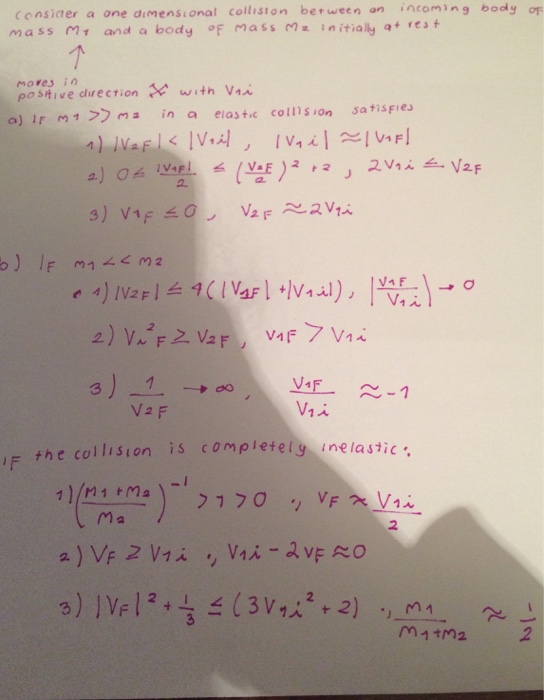 Consider a one dimensional collision between an incoming body of
mass M1 and a body of mass M2 initially at rest
↑
moves in
positive direction X with V1i
a) If m1 >> m2 in a elastic collision satisfies
1) |V2F| < |V1i| , |V1i| ≈ |V1F|
2) 0 ≤ |V1F|/2 ≤ (V2F/2)² + 2 , 2V1i ≤ V2F
3) V1F ≤ 0 , V2F ≈ 2V1i
b) IF m1 << m2
1) |V2F| ≤ 9(|V1F| + |V1i|), |V1F/V1i| → 0
2) V1²F ≥ V2F , V1F > V1i
3) 1/V2F → ∞ , V1F/V1i ≈ -1
IF the collision is completely inelastic:
1) ((M1 + M2)/M2)⁻¹ > 1 > 0 ., VF ≈ V1i/2
2) VF ≥ V1i ., V1i - 2VF ≈ 0
3) |VF|² + 1/3 ≤ (3V1i² + 2) ., M1/(M1+M2) ≈ 1/2